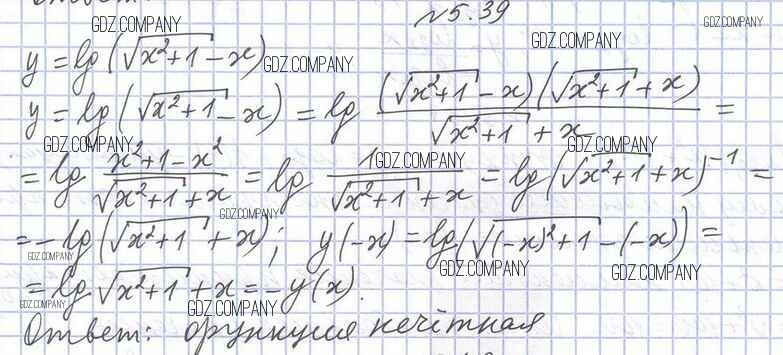 №5.39
y = lg(√(x²+1) - x)
y = lg(√(x²+1) - x) = lg ((√(x²+1) - x)(√(x²+1) + x))/(√(x²+1) + x) =
= lg (x²+1-x²)/(√(x²+1) + x) = lg 1/(√(x²+1) + x) = lg(√(x²+1) + x)⁻¹ =
= -lg(√(x²+1) + x); y(-x) = lg(√((-x)²+1) - (-x)) =
= lg √(x²+1) + x = -y(x)
Ответ: функция нечётная
GDZ.COMPANY
GDZ.COMPANY
GDZ.COMPANY
GDZ.COMPANY
GDZ.COMPANY
GDZ.COMPANY
GDZ.COMPANY
GDZ.COMPANY
GDZ.COMPANY
GDZ.COMPANY
GDZ.COMPANY
GDZ.COMPANY
GDZ.COMPANY